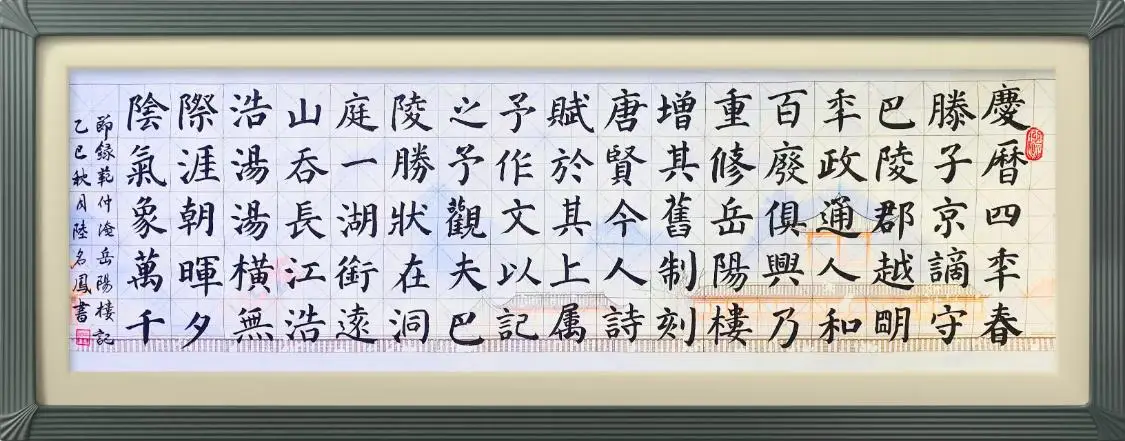 慶曆四年春
滕子京謫守
巴陵郡越明
年政通人和
百廢俱興乃
重修岳陽樓
增其舊制刻
唐賢今人詩
賦於其上属
予作文以記
之予觀夫巴
陵勝狀在洞
庭一湖銜遠
山吞長江浩
浩湯湯橫無
際涯朝暉夕
陰氣象萬千
節録範仲淹岳陽樓記
乙巳秋月陸名鳳書